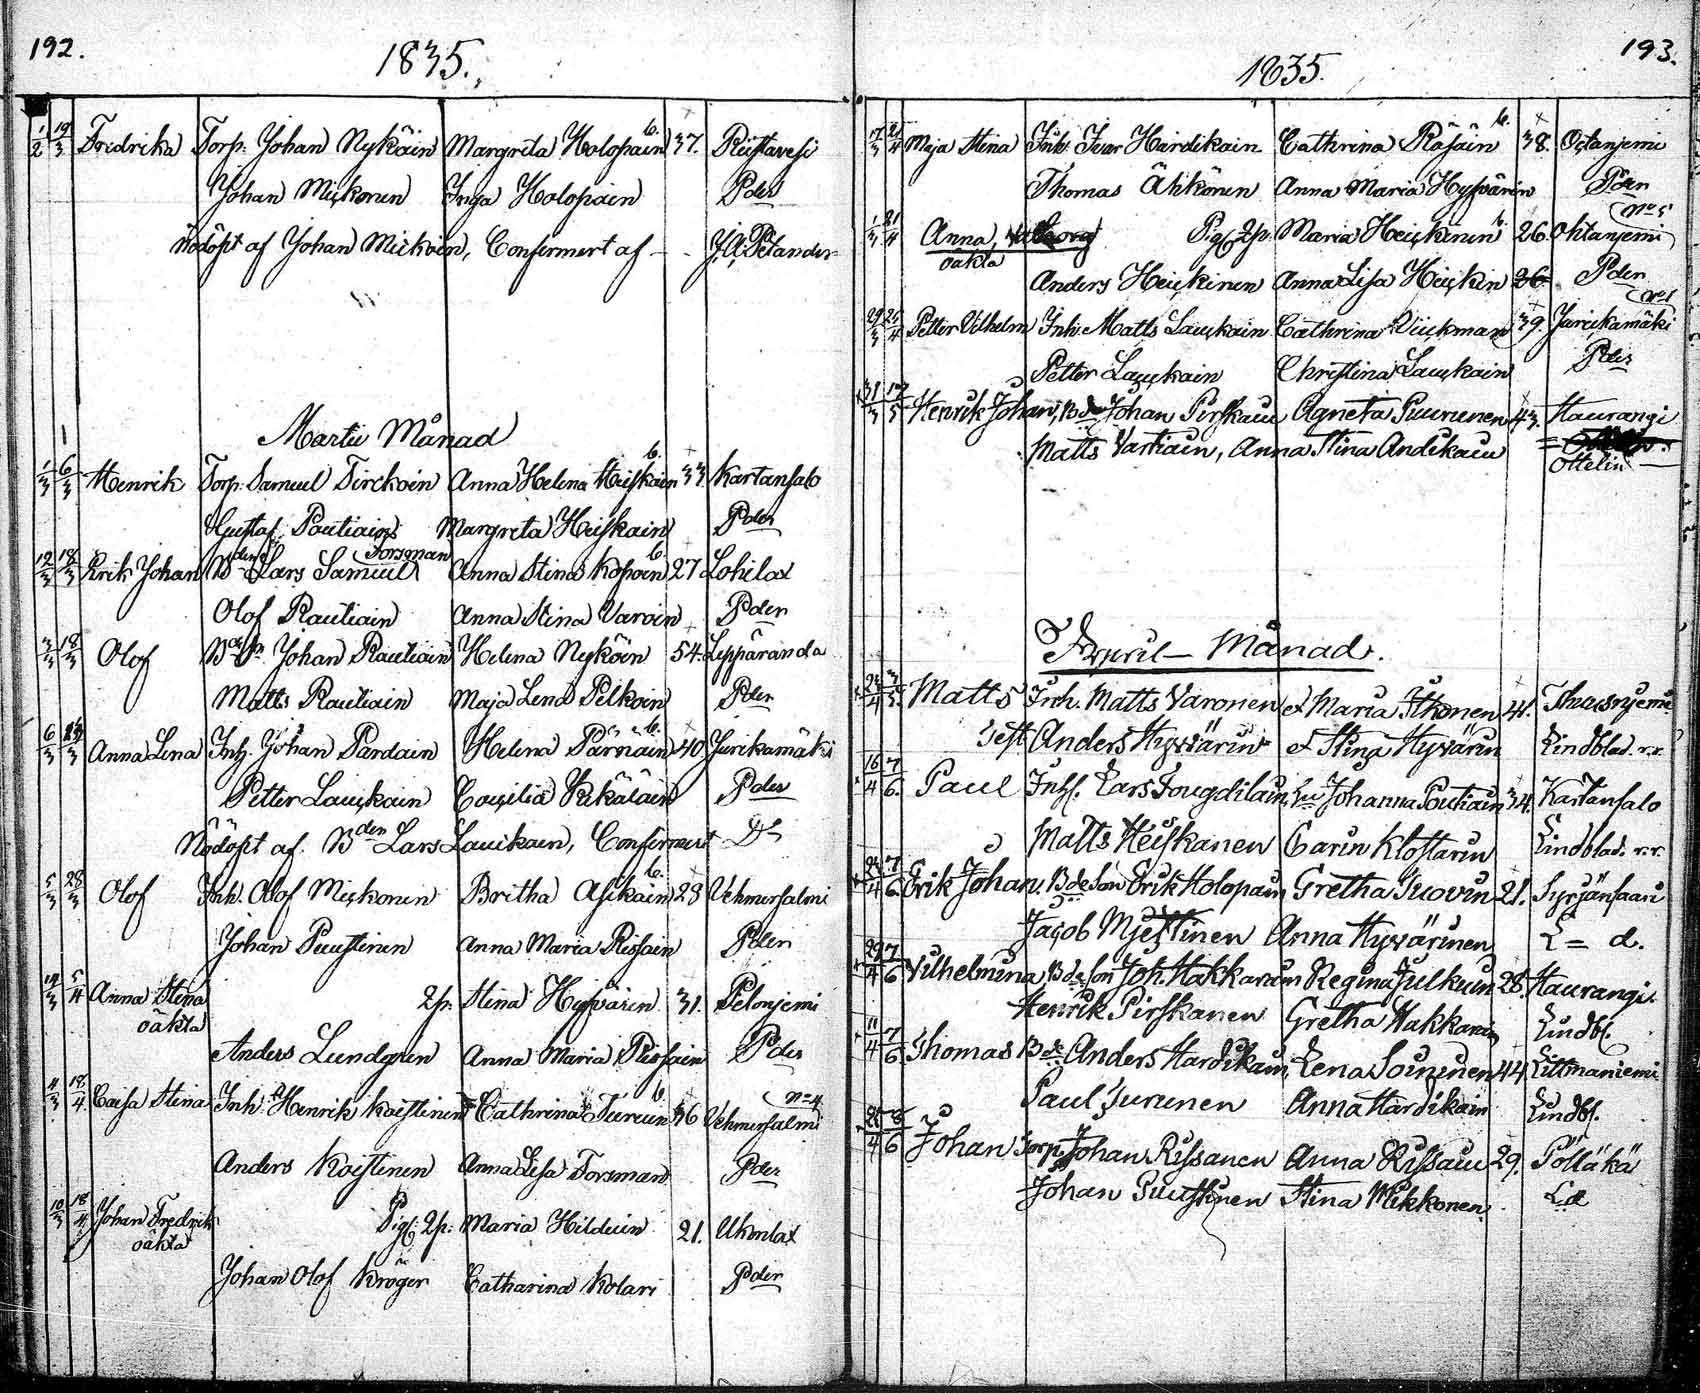 192.
1835.
1/2 19/3 Fredrika Torp. Johan Nykäin Margreta Holopain 37. Riistavesi
Johan Mickonen Inga Holopain Pder
Nödöpt af Johan Mickoin, Confirmert af J. A. Petander
Martii Månad
1/3 6/3 Henrik Torp. Samuel Tirckoin Anna Helena Heiskain 33. Kartansalo
Gustaf Poutiain Margreta Heiskain Pder
12/3 18/3 Erik Johan Bden Lars Samuel Forsman Anna Stina Kopoin 27 Lohilax
Olof Rautiain Anna Stina Varoin Pder
3/3 18/3 Olof Johan Rautiain Helena Nyköin 54. Lepparanda
Matts Rautiain Maja Lena Pelkoin Pder
6/3 Anna Lena Inh. Johan Pardain Helena Pärnäin 40. Jurikamäki
Petter Lauckain Cecilia Kekäläin Pder
Nödöpt af Bden Lars Lauikain, Confirmert Ds
5/3 28/3 Olof Inh. Olof Mickonen Britha Asikain 28 Vehmersalmi
Johan Puustinen Anna Maria Rissain Pder
14/3 5/4 Anna Stina oäkta 2p. Stina Hyfvären 31. Pelonjemi
Anders Lundgren Anna Maria Rissain Pder
4/3 18/4 Caisa Stina Inh. Henrik Koistinen Cathrina Turuin 36 Vehmersalmi n=4
Anders Koistinen Anna Lisa Forsman Pder
10/3 18/4 Johan Fredrik oäkta Pig. 2p. Maria Hilduin 21. Ukonlax
Johan Olof Kröger Catharina Kolari Pder
193.
1835.
17/3 21/4 Maja Stina Inh. Ivar Hardikain Cathrina Räsäin 38. Ollanjemi
Thomas Ahkönen Anna Maria Hyfvärin Pder
1/3 21/4 Anna, oäkta Pig. 2p. Maria Heickinen 26. Ohtanjemi No 5
Anders Heickinen Anna Lisa Heickin 26 Pder
29/3 25/4 Petter Vilhelm Inh. Matts Lauckain Cathrina Vickman 39. Jurickamäki No 1
Petter Lauckain Christina Lauckain Pder
31/3 17/5 Henrik Johan, Bde Johan Pirskain Agneta Puurunen 43. Haurangi
Matts Vartiain, Anna Stina Andikain Ottelin
Aprril Månad.
24/4 3/5 Matts Inh. Matts Varonen et Maria Ihonen 41.
Test Anders Hyvärin et Stina Hyvärin Lindblad. v.r.
16/4 7/6. Paul Inh. Lars Fougdilain, Hu Johanna Poutiain 34. Kartansalo
Matts Heiskanen Carin Klostarin Lindblad. v.r.
24/4 7/6 Erik Johan, Bdeson Erik Holopain Gretha Suovin 21. Syrjänsaari
Jacob Miettinen Anna Hyvärinen L = d.
29/4 7/6 Vilhelmina Bdeson Joh. Hakkarain Regina Julkuin 28. Haurangi.
Henrik Pirskanen Gretha Hakkarain Lindbl.
11/4 7/6. Thomas Bde Anders Hardikain, Lena Soininen 44 Littmaniemi
Paul Jurunen Anna Hardikain Lindbl.
26/4 8/6 Johan Torp. Johan Rissanen Anna Rissain 29. Pölläkä
Johan Puustinen Stina Mikkonen Ld